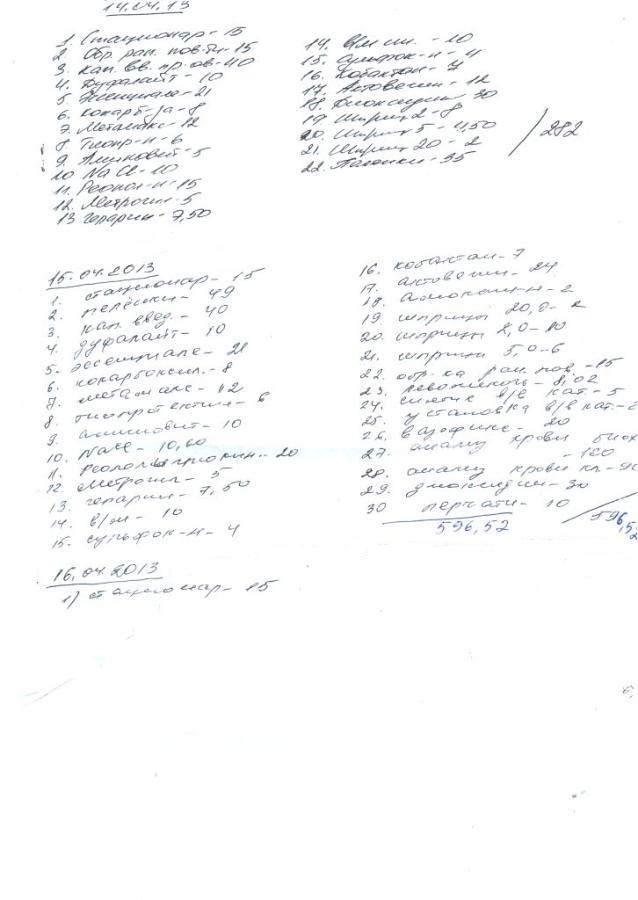 14.04.13
1. Стационар - 15
2. Обр. ран. пов-ти - 15
3. Кап. вв. пр-ов - 40
4. Дуфалайт - 10
5. Эссенциале - 21
6. Кокарб-за - 8
7. Метамакс - 12
8. Тиопр-н - 6
9. Аминовит - 5
10. NaCl - 10
11. Реопол-н - 15
12. Метрогил - 5
13. гепарин - 7,50
14. - 10
15. Сульфок-н - 4
16. Кобактан - 7
17. Актовегин - 12
18. Диоксидин 30
19. Шприц 2 - 8
20. Шприц 5 - 4,50
21. Шприц 20 - 2
22. - 35
/ 282
15.04.2013
1. стационар - 15
2. пелёнки - 49
3. кап. введ. - 40
4. дуфалайт - 10
5. эссенциале - 21
6. кокарбоксил. - 8
7. метамакс - 12
8. тиопротектин - 6
9. аминовит - 10
10. NaCl - 10,60
11. - 20
12. метрогил - 5
13. гепарин - 7,50
14. в/м - 10
15. сульфок-н - 4
16. кобактан - 7
17. актовегин - 24
18. - 2
19. шприцы 20,0 -
20. шприцы 2,0 - 10
21. шприцы 5,0 - 6
22. обр-ка ран. пов. - 15
23. - 8,02
24. снятие в/в кат. - 5
25. установка в/в кат. -
26. вазофикс - 20
27. анализ крови биох
- 160
28. анализ крови кл - 90
29. диоксидин - 30
30 перчатки - 10
596,52
/ 596,52
16.04.2013
1) стационар - 15